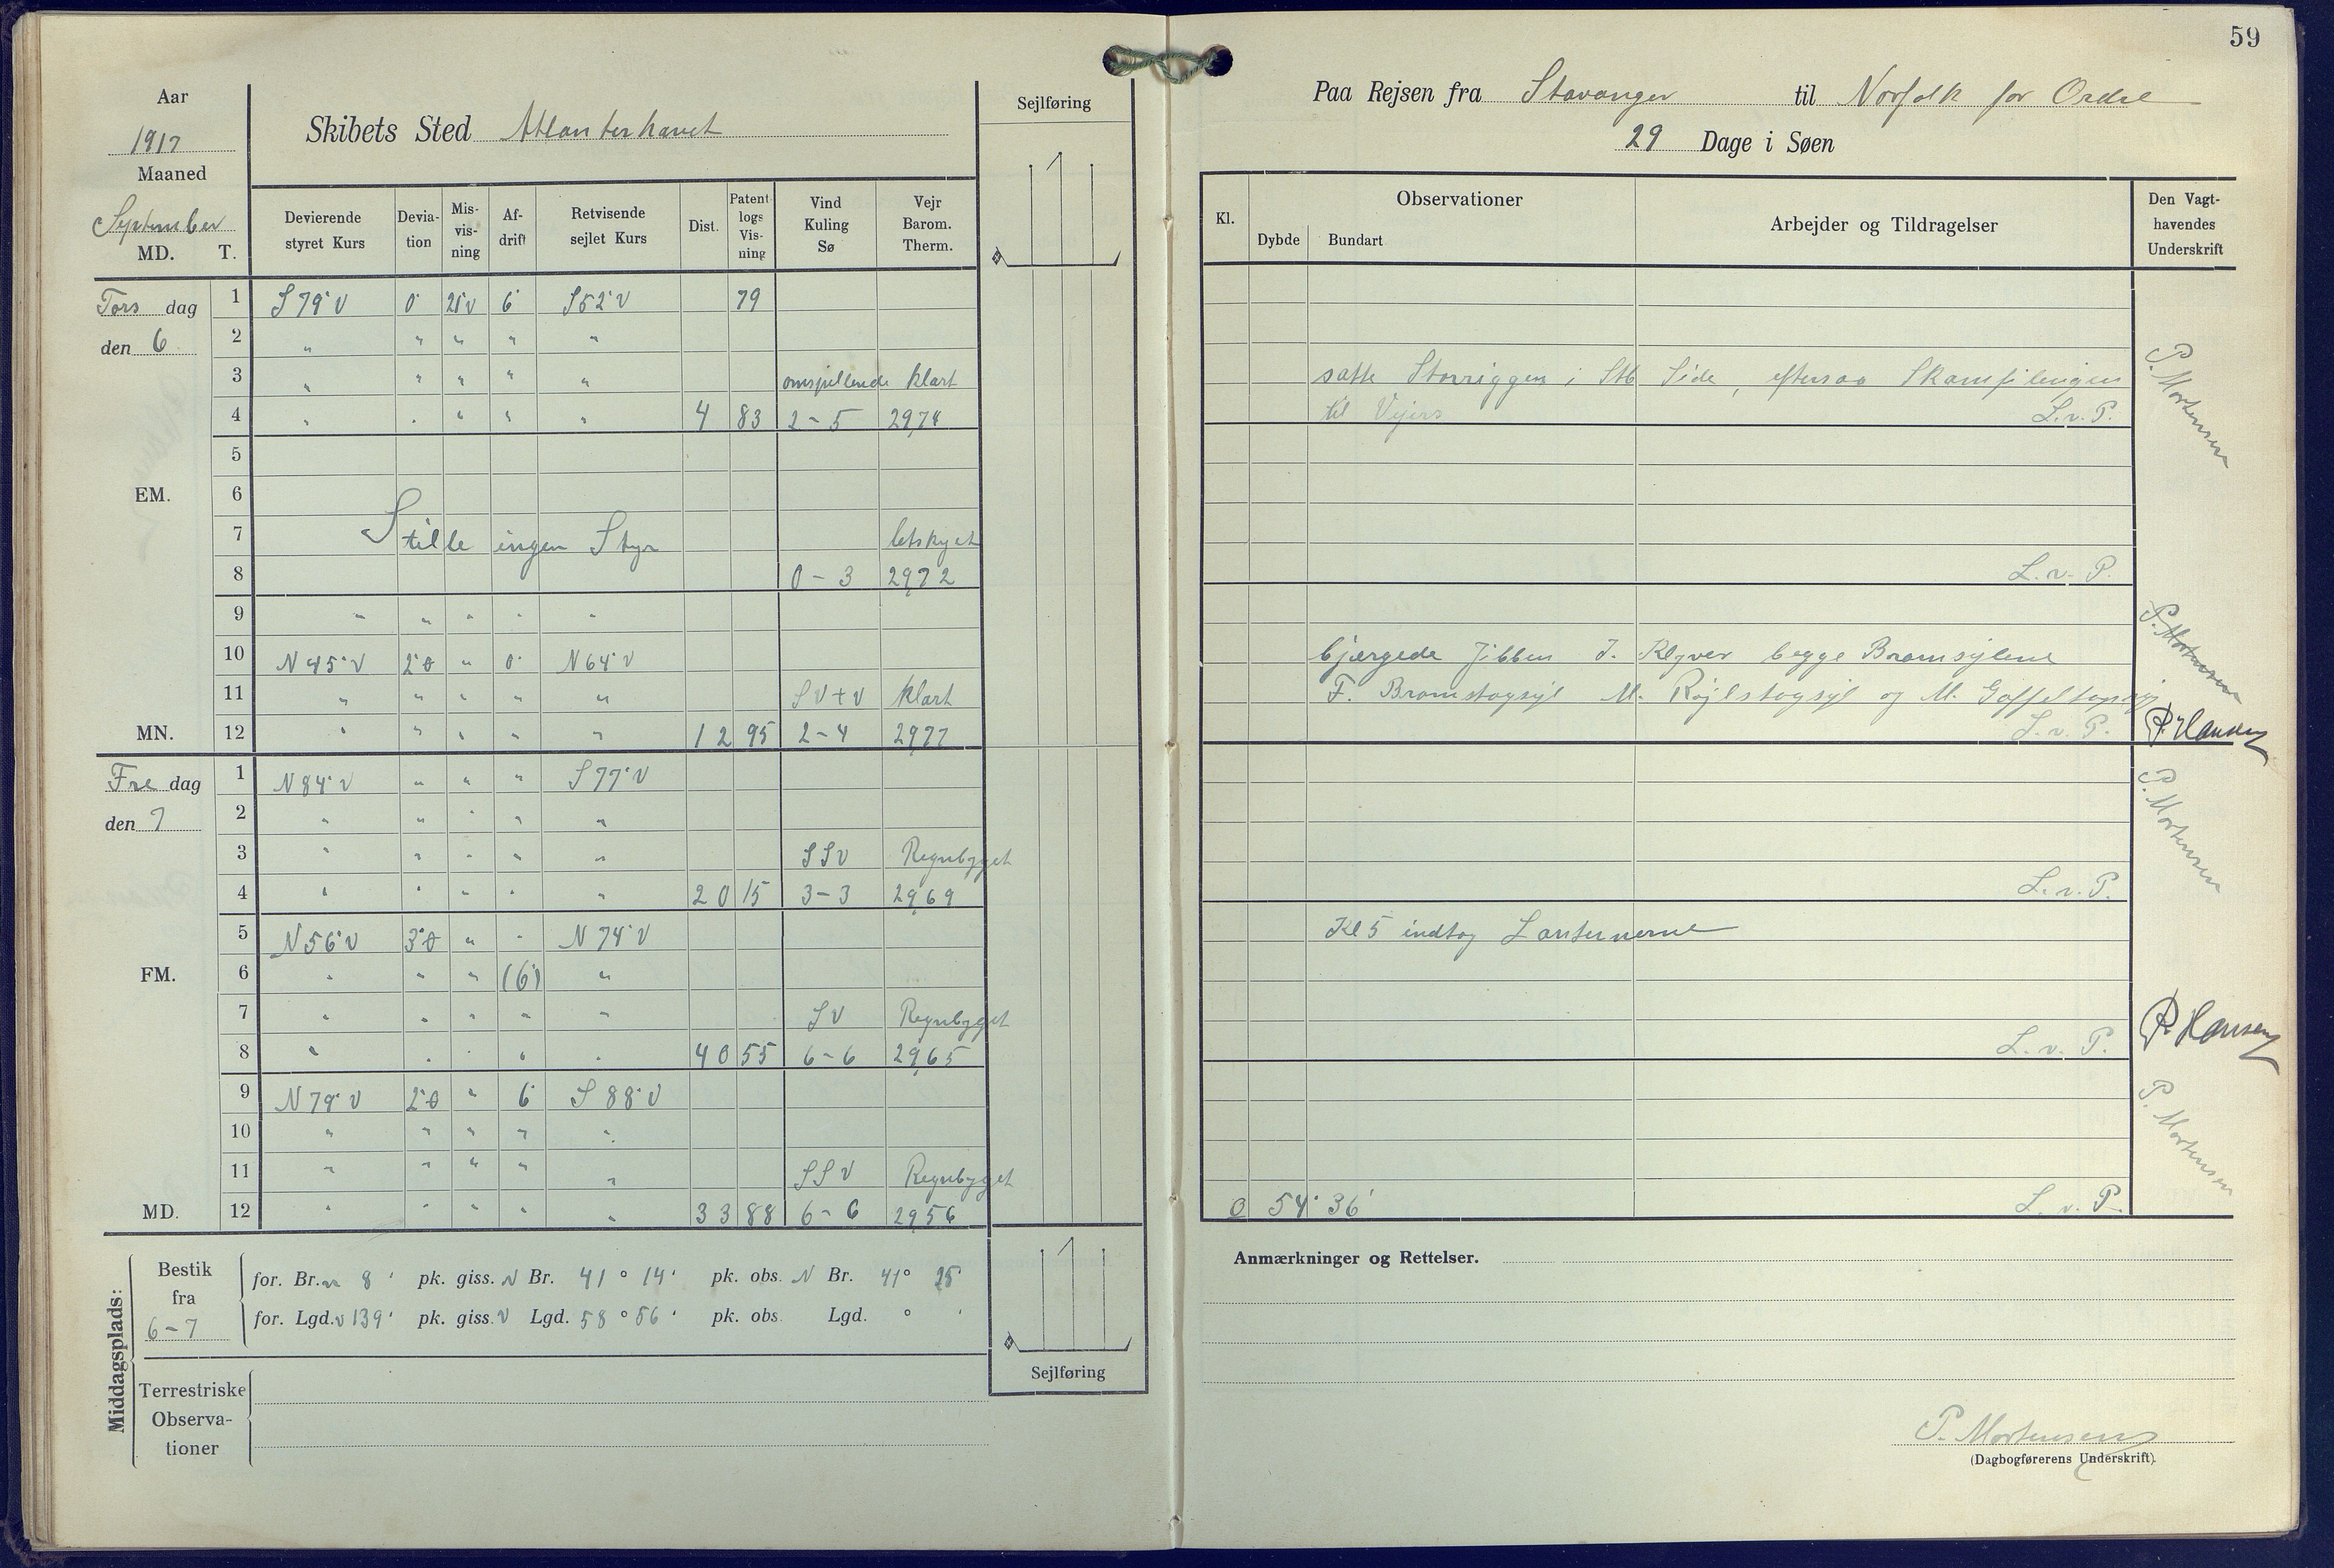 59
Aar
1917
Maaned
September
MD. T.
Skibets Sted Atlanterhavet
Sejlføring
Devierende styret Kurs | Deviation | Misvisning | Afdrift | Retvisende sejlet Kurs | Dist. | Patent logs Visning | Vind Kuling Sø | Vejr Barom. Therm.
Tors dag 1 S 79° V 0° 21 V 6° S 52° V 79
den 6 2 " " " " "
3 " " " " " omspillende klart
4 " " " " " 4 83 2-5 29,74
5
EM. 6
7 Stille ingen Styr letskyet
8 0-3 29,72
9 " " " " "
10 N 45° V 2° Ø " 0° N 64° V
11 " " " " " SV t V klart
MN. 12 " " " " " 12 95 2-4 29,77
Fre dag 1 N 84° V " " " S 77° V
den 7 2 " " " " "
3 " " " " " SSV Regnbyget
4 " " " " " 20 15 3-3 29,69
5 N 56° V 3° Ø " " N 74° V
FM. 6 " " " (6°) "
7 " " " " " SV Regnbyget
8 " " " " " 40 55 6-6 29,65
9 N 79° V 2° Ø " 6° S 88° V
10 " " " " "
11 " " " " " SSV Regnbyget
MD. 12 " " " " " 33 88 6-6 29,56
Middagsplads:
Bestik fra 6-7
for. Br. n 8 ' pk. giss. N Br. 41 ° 14 ' pk. obs. N Br. 41° 25'
for. Lgd. v 139 ' pk. giss. V Lgd. 58 ° 56 ' pk. obs. Lgd. ° '
Sejlføring
Terrestriske
Observa-
tioner
Paa Rejsen fra Stavanger til Norfolk for Ordre
29 Dage i Søen
Kl. | Observationer | Dybde | Bundart | Arbejder og Tildragelser | Den Vagthavendes Underskrift
satte Storriggen i Stb Side, eftersaa Skamfilingen
til Vejrs L. v. P.
P. Mortensen
L. v. P.
P. Mortensen
bjærgede Jibben J. Klyver begge Bramsejlene
F. Bramstagsejl M. Røjlstagsejl og M. Gaffeltopsejl
L. v. P. P. Hansen
P. Mortensen
L. v. P.
Kl 5 indtog Lanternerne
L. v. P. P. Hansen
P. Mortensen
O 54° 36' L. v. P.
Anmærkninger og Rettelser.
P. Mortensen
(Dagbogførerens Underskrift).